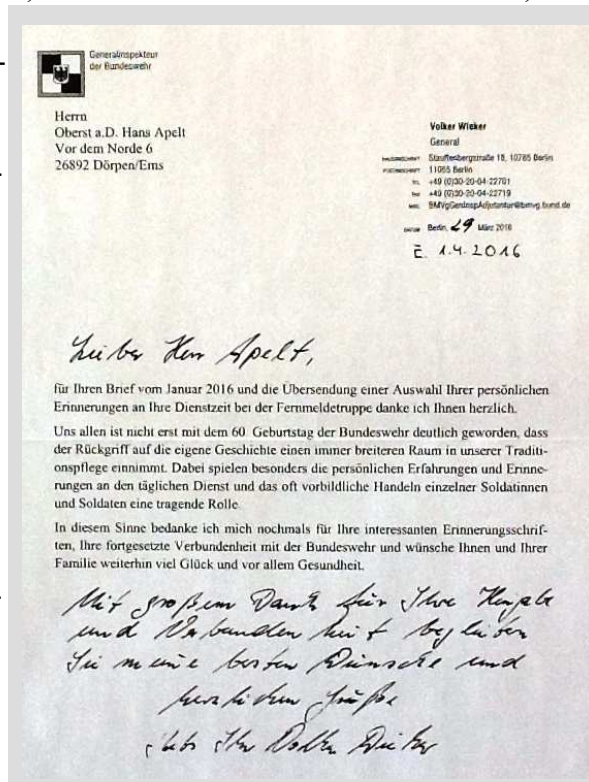 Generalinspekteur
der Bundeswehr
Herrn
Oberst a.D. Hans Apelt
Vor dem Norde 6
26892 Dörpen/Ems
Volker Wieker
General
HAUSANSCHRIFT Stauffenbergstraße 18, 10785 Berlin
POSTANSCHRIFT 11055 Berlin
TEL +49 (0)30-20-04-22701
FAX +49 (0)30-20-04-22719
MAIL BMVgGenInspAdjutantur@bmvg.bund.de
DATUM Berlin, 29 März 2016
E. 1.4.2016
Lieber Herr Apelt,
für Ihren Brief vom Januar 2016 und die Übersendung einer Auswahl Ihrer persönlichen
Erinnerungen an Ihre Dienstzeit bei der Fernmeldetruppe danke ich Ihnen herzlich.
Uns allen ist nicht erst mit dem 60. Geburtstag der Bundeswehr deutlich geworden, dass
der Rückgriff auf die eigene Geschichte einen immer breiteren Raum in unserer Traditi-
onspflege einnimmt. Dabei spielen besonders die persönlichen Erfahrungen und Erinne-
rungen an den täglichen Dienst und das oft vorbildliche Handeln einzelner Soldatinnen
und Soldaten eine tragende Rolle.
In diesem Sinne bedanke ich mich nochmals für Ihre interessanten Erinnerungsschrif-
ten, Ihre fortgesetzte Verbundenheit mit der Bundeswehr und wünsche Ihnen und Ihrer
Familie weiterhin viel Glück und vor allem Gesundheit.
Mit großem Dank für Ihre Hingabe
und Verbundenheit begleiten
Sie meine besten Wünsche und
herzlichen Grüße
Ihr Volker Wieker